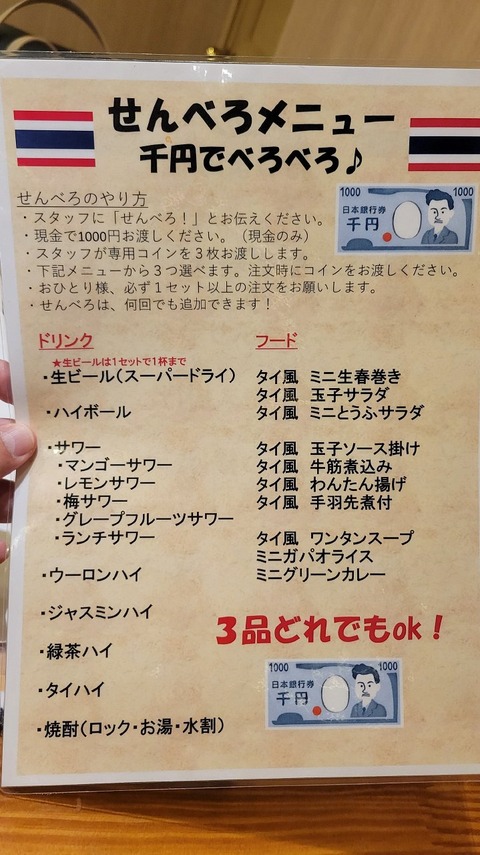 せんべろメニュー
千円でべろべろ♪
せんべろのやり方
・スタッフに「せんべろ！」とお伝えください。
・現金で1000円お渡しください。（現金のみ）
・スタッフが専用コインを３枚お渡しします。
・下記メニューから３つ選べます。注文時にコインをお渡しください。
・おひとり様、必ず１セット以上の注文をお願いします。
・せんべろは、何回でも追加できます！
1000 1000
日本銀行券
千円
ドリンク
★生ビールは１セットで１杯まで
・生ビール（スーパードライ）
・ハイボール
・サワー
・マンゴーサワー
・レモンサワー
・梅サワー
・グレープフルーツサワー
・ランチサワー
・ウーロンハイ
・ジャスミンハイ
・緑茶ハイ
・タイハイ
・焼酎（ロック・お湯・水割）
フード
タイ風 ミニ生春巻き
タイ風 玉子サラダ
タイ風 ミニとうふサラダ
タイ風 玉子ソース掛け
タイ風 牛筋煮込み
タイ風 わんたん揚げ
タイ風 手羽先煮付
タイ風 ワンタンスープ
ミニガパオライス
ミニグリーンカレー
３品どれでもok！
1000 1000
日本銀行券
千円